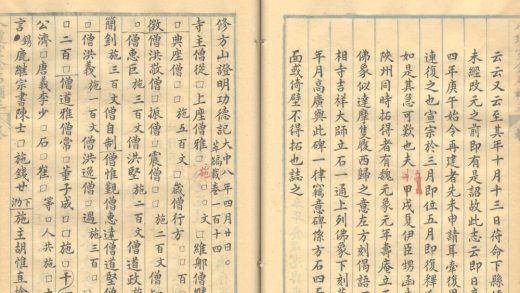 云云又云至其年十月十三日符命下縣
未經改元之前即有是詔故此志云即日
四年庚午始令再建者先未申請耳
連復之也宣宗於三月即位五月即復釋
如是其急可歎也夫 甲戌夏伊臣甥函
陝州同時拓得者有魏元象元年壽庵立
佛象似達摩隻履西歸之意左方刻偈語
相寺吉祥大師立石一通上列佛象下刻
年月高廣與此碑一律竊意碑係方石四
面或倚壁不得拓也誌之
修方山證明功德記 大中八年四月廿日。萃編載卷一百十四
寺主僧從□上座僧雅□施□□文□維那僧
□典座僧□□施五百文□歲僧行方□
徵僧洪敬僧□振僧□震僧□
僧惠巨施三百文僧洪堅施二百文僧道政施
簡釗施三百文僧自制僧惟覬僧惠達僧道堅僧
僧洪義施一百文僧洪逸僧□遇施三百□
□二百□僧道雅僧常□董子成□□施□千
公濟□唐義李少□石□崔□□等□人共施□
言鹿離宗書陳士□施錢廿下泐施主胡惟直